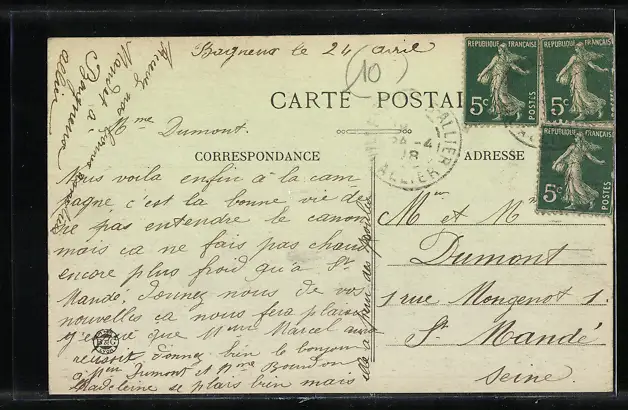 Bagneux le 24 avril
(10)
CARTE POSTALE
Mme Dumont.
CORRESPONDANCE
Nous voila enfin à la cam
pagne c'est la bonne vie de
ne pas entendre le canon
mais ca ne fais pas chaud
encore plus froid qu'a St
Mandé, donnez nous de vos
nouvelles ca nous fera plaisir
que Mme Marcel aura
reussit donnez bien le bonjour
a Mm Dumont et Mme Bourdon
Madeleine se plais bien mais
elle a peur des
Mandet a
Bagneux
allier
ADRESSE
Mr et Mme
Dumont
1 rue Mongenot 1.
St Mandé
Seine
REPUBLIQUE FRANÇAISE
5c
POSTES
REPUBLIQUE FRANÇAISE
5c
POSTES
5c
POSTES
ALLIER
24 -4
18